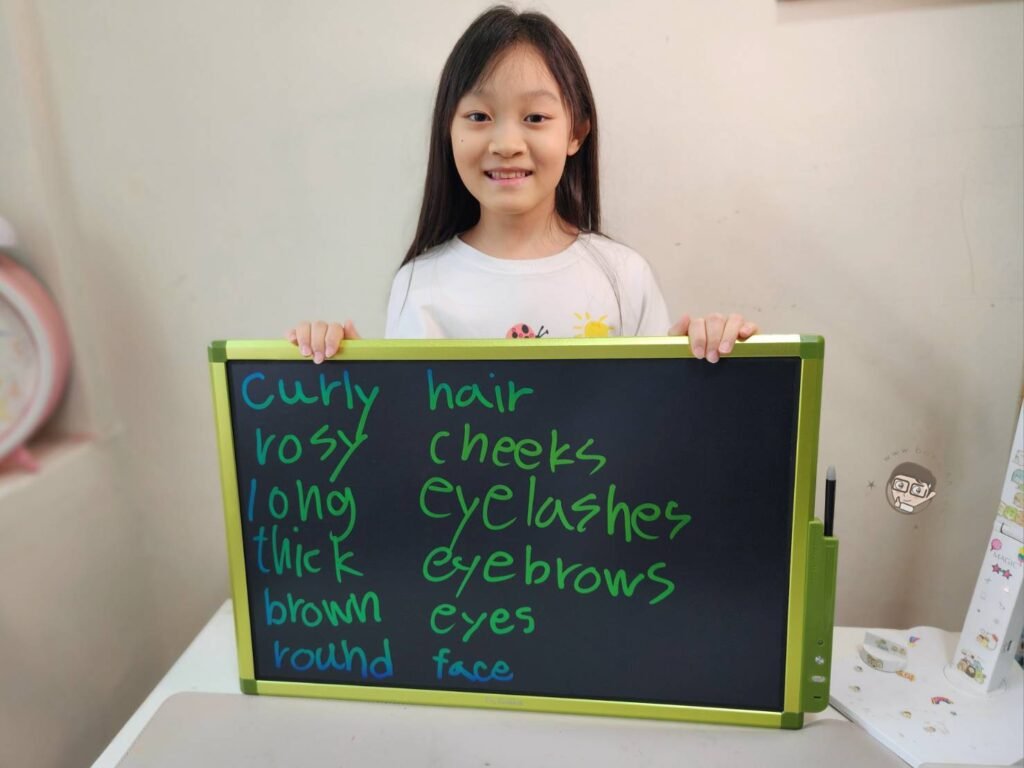 curly hair
rosy cheeks
long eyelashes
thick eyebrows
brown eyes
round face
MAGIC